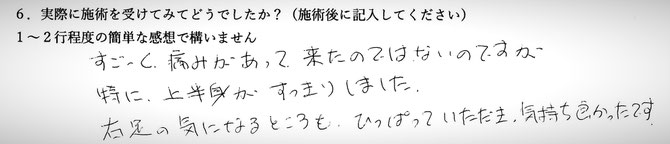 6．実際に施術を受けてみてどうでしたか？（施術後に記入してください）
1～2行程度の簡単な感想で構いません
すごーく、痛みがあって、来たのではないのですが
特に、上半身が すっきりしました.
右足の気になるところも、ひっぱっていただき、気持ち良かったです